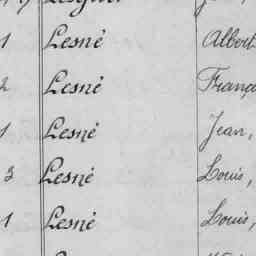 1 Lesné Albert
2 Lesné Franço
1 Lesné Jean,
3 Lesné Louis,
1 Lesné Louis,